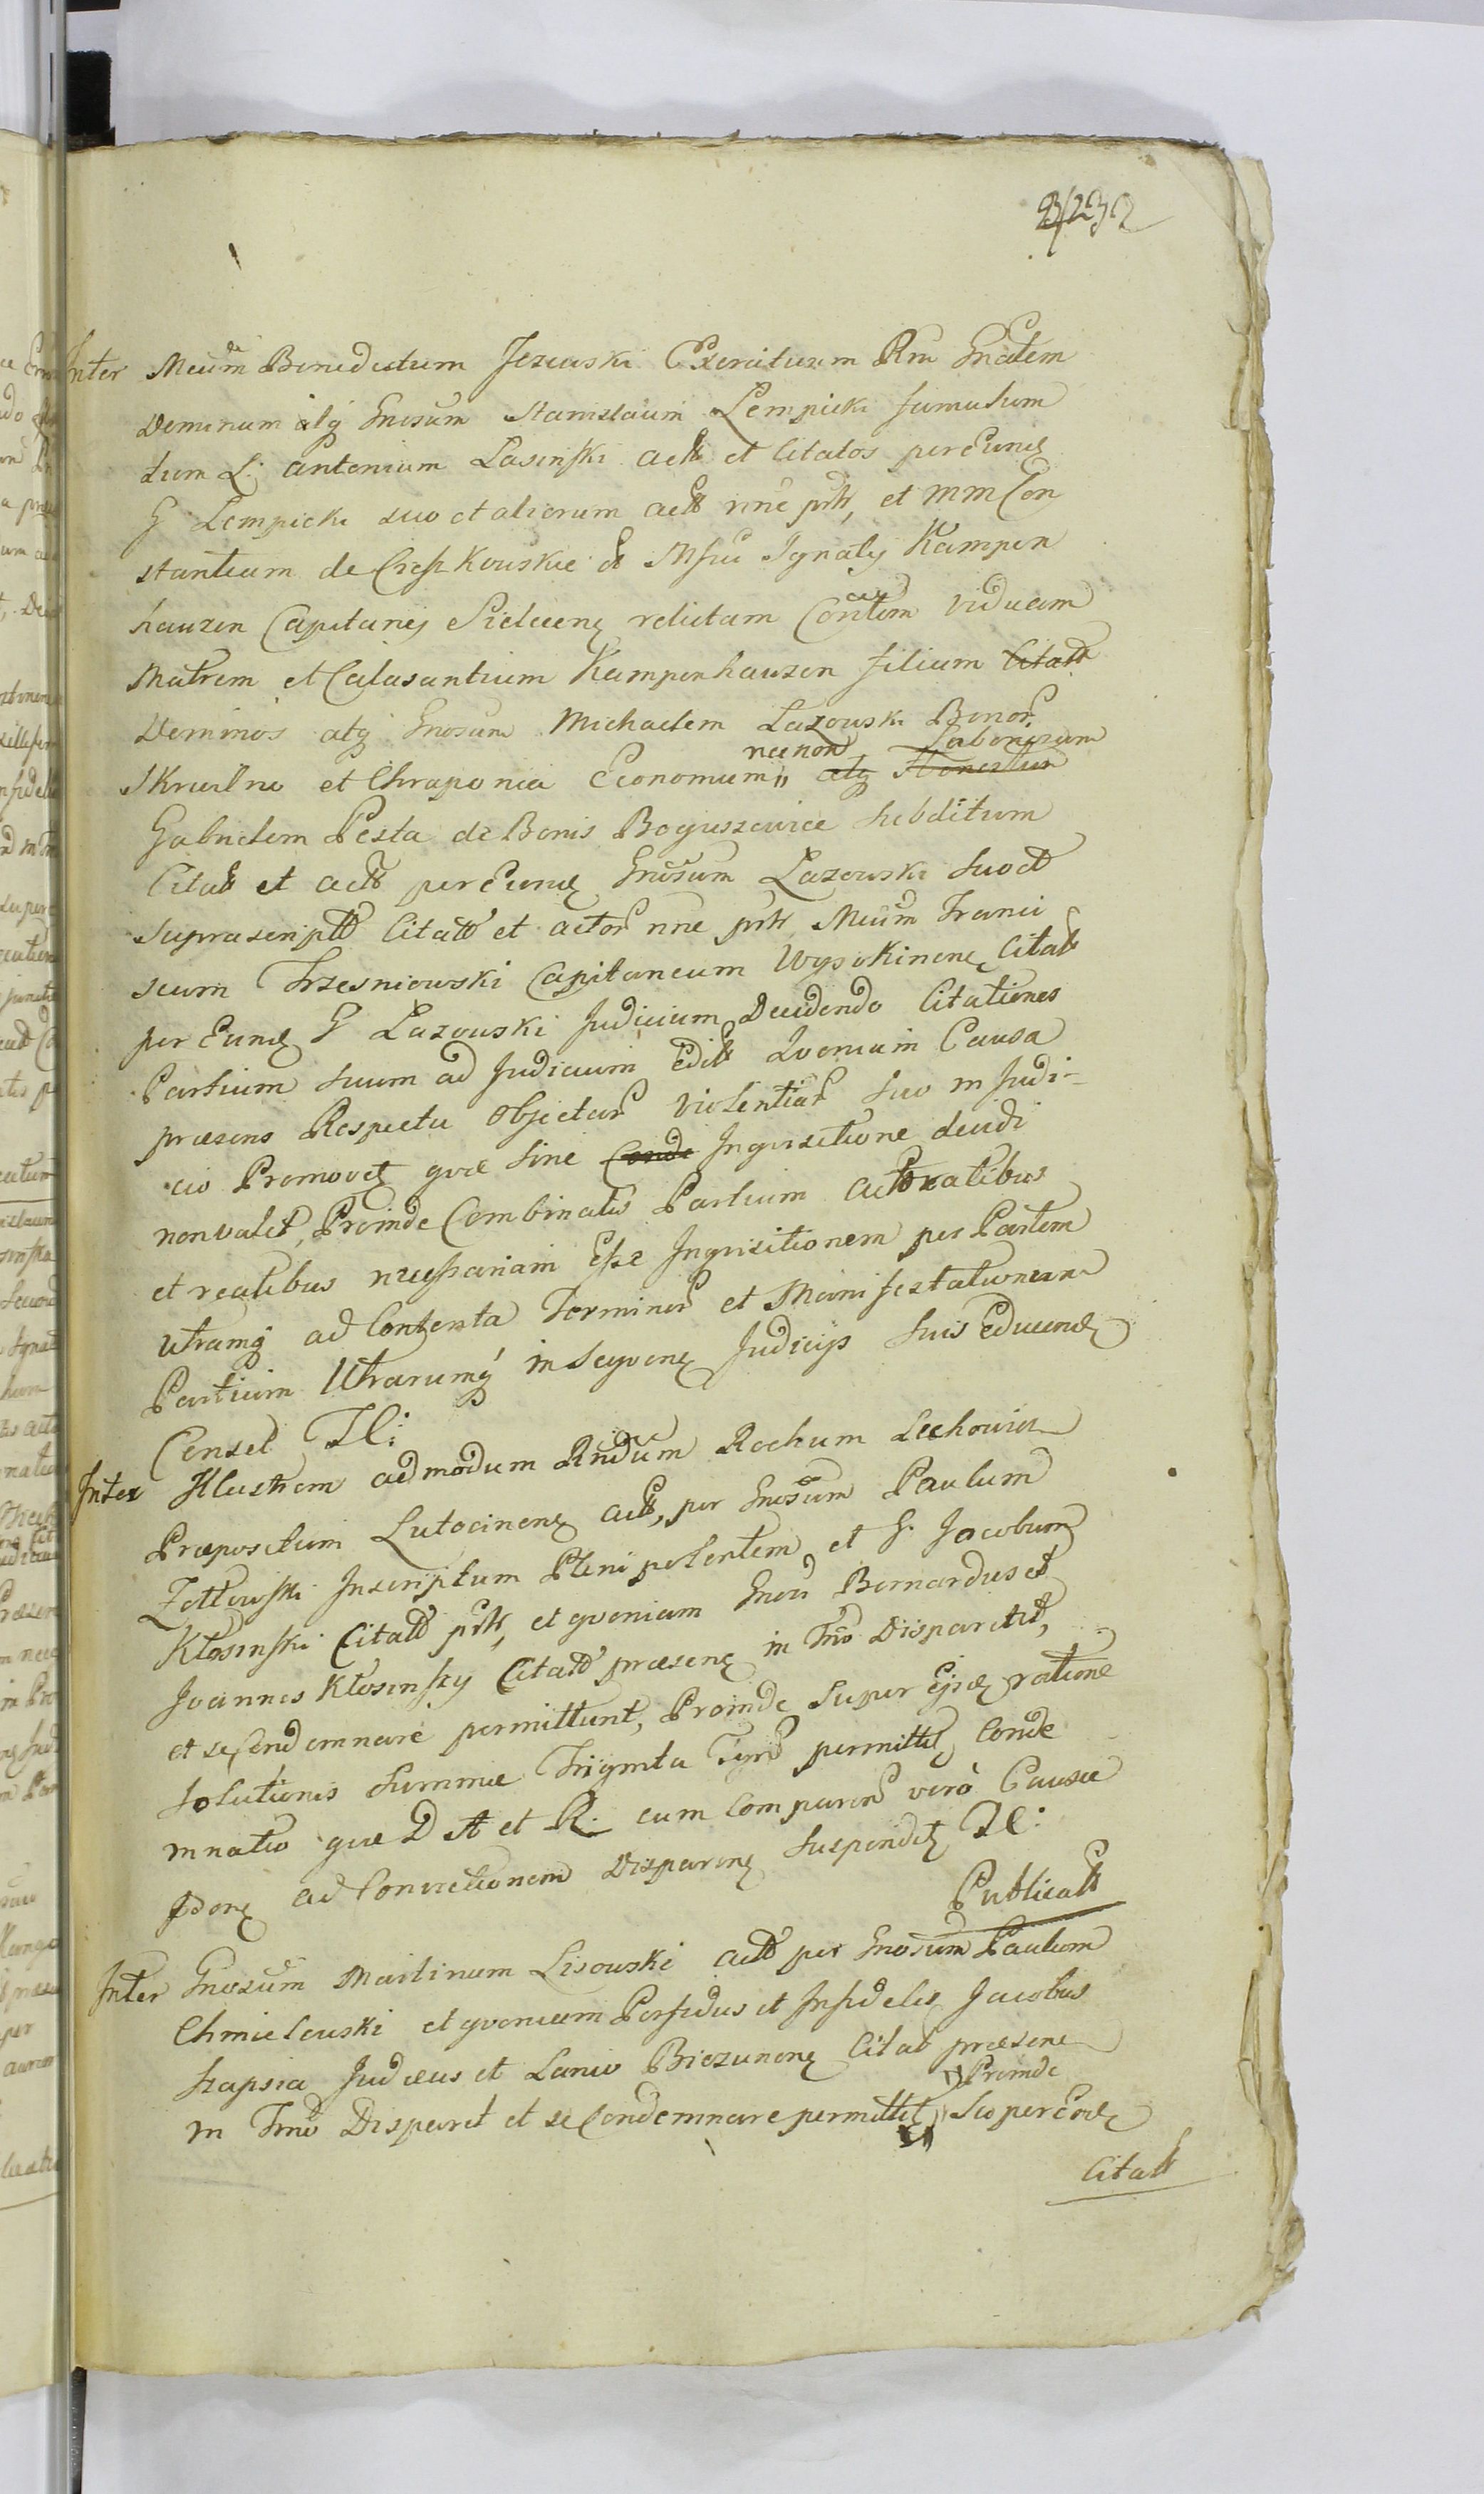 232
Inter Mcum Benedictum Jezewski Exercituum Rni Gnalem
Dominum atq Gnosum Stanislaum Lempicki famulum
tum L. Antonium Lasinski act et Citatos per Eund
G Lempicki suo et aliorum act nne prtt, et MM Con
stantiam de Cieszkouskie M Ignatij Kampen
hauzen Capitanej relictam viduam
Matrem et Calasantium Kampenhauzen filium Citatt
Dominos atq Gnosum Michaelem Lazouski Bonor
necnon Laboriosum
Skrwilno et Chraponia Economum atq Honestum
Gabrielem Pesta de Bonis Boguszewice subditum
Citatt et actt per Eund Gnosum Lazouski suo et
suprascriptt Citatt et actor nne prtt Mcum Franci
scum Trzesniowski Capitaneum Wyszkinens Citatt
per Eund G Lazouski Judicium Decidendo Citationes
Partium suum ad Judicium Edit Quoniam Causa
præsens Respectu Objectar violentiar suo in Judi-
cio Promovet quæ sine Conde Inquisitione decidi
non valet, Proinde Combinatis Partium actoratibus
et reatibus necessariam Esse Inquisitionem per Partem
utramq ad Contenta Terminor et Manifestationum
Partium Utrarumq in sequen Judicijs suis Educend
Censet Il:
Inter Illustrem admodum Rndum Rochum Lechowicz
Præpositum Lutocinens actt, per Gnosum Paulum
Zottowski Inscriptum Plenipotentem et G. Jacobum
Klosinski Citatt prtt, et quoniam Gnosi Bernardus et
Joannes Klosinscy Citatt præsens in Tmo Disparent,
et se Condemnare permittunt, Proinde super Ejsd ratione
solutionis summæ Triginta permittit Conde
mnatio quæ D A et R. cum Comparen vero Causæ
ad Convictionem Disparen suspendit Il:
Publicatt
Inter Gnosum Martinum Lisouski actt per Gnosum Paulum
Chmielouski et quoniam Perfidus et Infidelis Jacobus
Szapsia Judæus et Lanio Biezunens Citat præsens
Proinde
in Tmo Disparet et se Condemnare permittit super Eod
Citatt